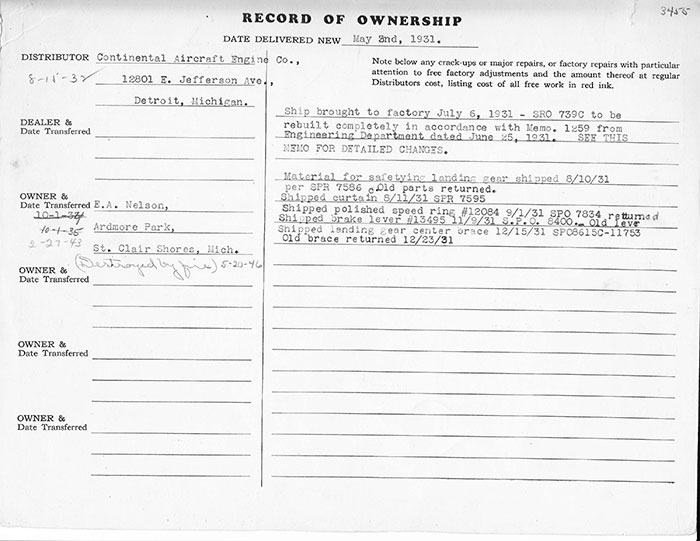 3455
RECORD OF OWNERSHIP
DATE DELIVERED NEW May 2nd, 1931.
DISTRIBUTOR Continental Aircraft Engine Co.,
8-15-32 12801 E. Jefferson Ave.,
Detroit, Michigan.
DEALER &
Date Transferred
OWNER &
Date Transferred E.A. Nelson,
10-1-34
10-1-35 Ardmore Park,
2-27-43
St. Clair Shores, Mich.
(Destroyed by fire) 5-20-46
OWNER &
Date Transferred
OWNER &
Date Transferred
OWNER &
Date Transferred
Note below any crack-ups or major repairs, or factory repairs with particular
attention to free factory adjustments and the amount thereof at regular
Distributors cost, listing cost of all free work in red ink.
Ship brought to factory July 6, 1931 - SRO 739C to be
rebuilt completely in accordance with Memo. 1259 from
Engineering Department dated June 25, 1931. SEE THIS
MEMO FOR DETAILED CHANGES.
Material for safetying landing gear shipped 8/10/31
per SPR 7586 Old parts returned.
Shipped curtain 8/11/31 SPR 7595
Shipped polished speed ring #12084 9/1/31 SPO 7834 returned
Shipped brake lever #13495 11/9/31 S.P.O. 8400. Old leve
Shipped landing gear center brace 12/15/31 SPO8615C-11753
Old brace returned 12/23/31